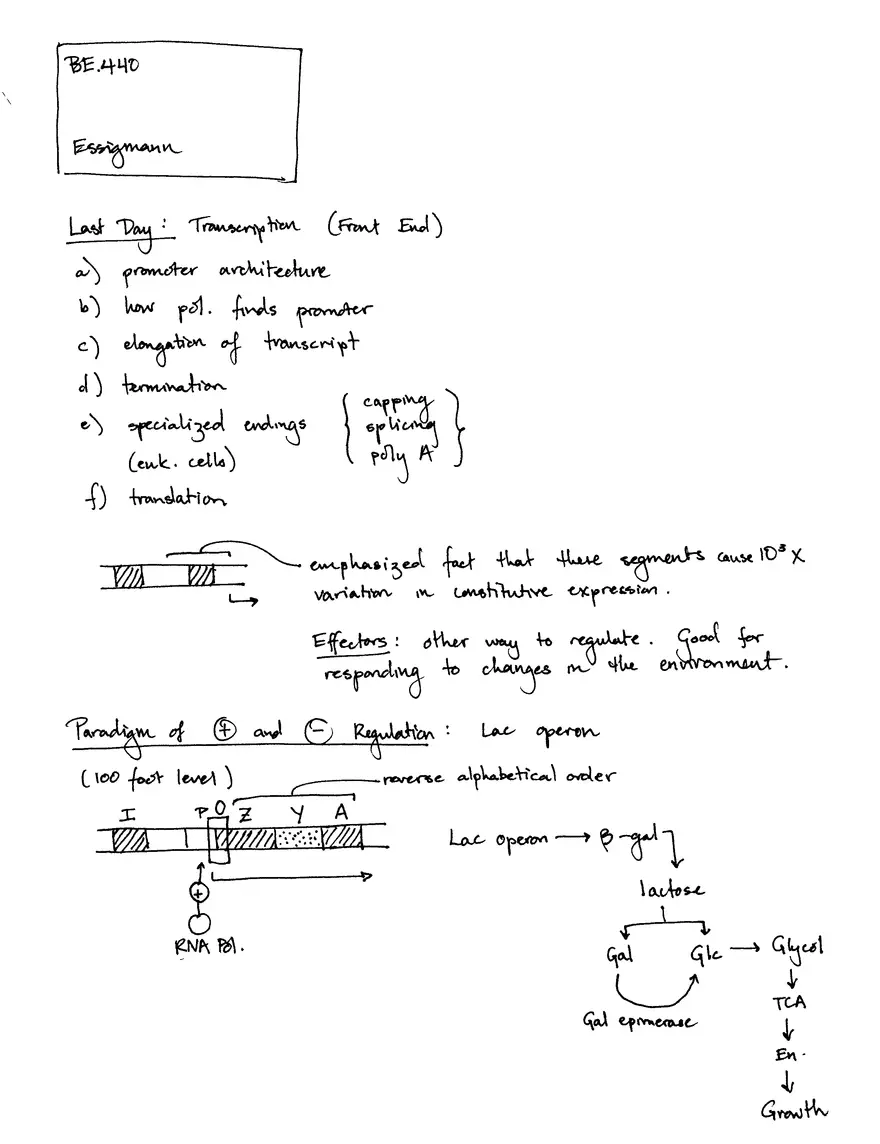 BE.440
Essigmann
Last Day: Transcription (Front End)
a) promoter architecture
b) how pol. finds promoter
c) elongation of transcript
d) termination
e) specialized endings
(euk. cells)
{ capping
splicing
poly A }
f) translation
emphasized fact that these segments cause 10³ X
variation in constitutive expression.
Effectors: other way to regulate. Good for
responding to changes in the environment.
Paradigm of ⊕ and ⊖ Regulation: Lac operon
(100 foot level)
reverse alphabetical order
I P O Z Y A
+
RNA Pol.
Lac operon → β-gal
lactose
Gal Glc → Glycol
Gal epimerase
TCA
En.
Growth